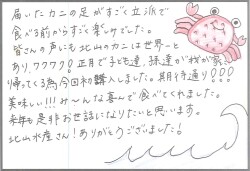 届いたカニの足がすごく立派で
食べる前からすごく楽しみでした。
皆さんの声にも北山のカニは世界一と
あり、ワクワク！正月で子ども達、孫達が我が家に
帰ってくる為今回初購入しました。期待通り！！！
美味しい!!!み〜んな喜んで食べてくれました。
来年も是非お世話になりたいと思います。
北山水産さん！ありがとうございました！